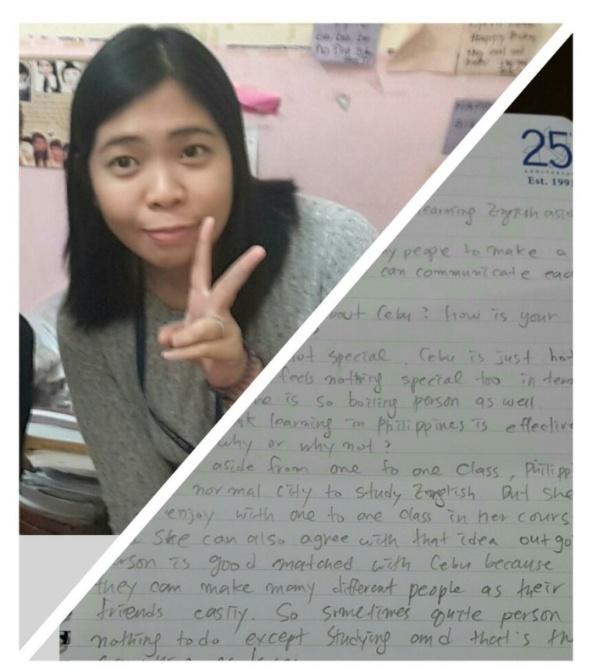 Happy
25
Est. 199
earning English asid
y people to make a
can communicate eac
out Cebu? how is your
ot special. Cebu is just hot
feels nothing special too in tem
e is so boiling person as well
k learning in Philippines is effective
why or why not?
aside from one to one class, Philipp
normal city to study English But she
enjoy with one to one class in her cours
She can also agree with that idea outgo
rson is good matched with Cebu because
they can make many different people as their
friends easily. So sometimes quite person
nothing to do except studying and that's th